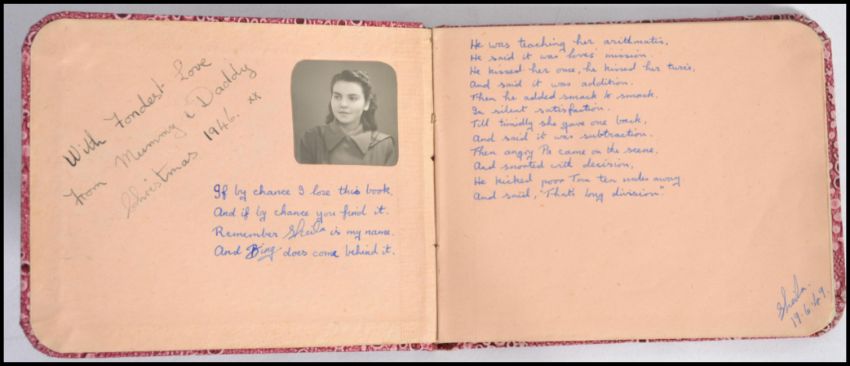 With Fondest Love
From Mummy & Daddy
Christmas 1946. xx
If by chance I lose this book,
And if by chance you find it.
Remember Sheila is my name.
And Bing does come behind it.
He was teaching her arithmatic,
He said it was loves' mission.
He kissed her one, he kissed her twice,
And said it was addition.
Then he added smack to smack,
In silent satisfaction.
Till timidly she gave one back,
And said it was subtraction.
Then angry Pa came on the scene,
And snorted with decision,
He kicked poor Tom ten miles away
And said, "That's long division".
Sheila.
19.6.49.